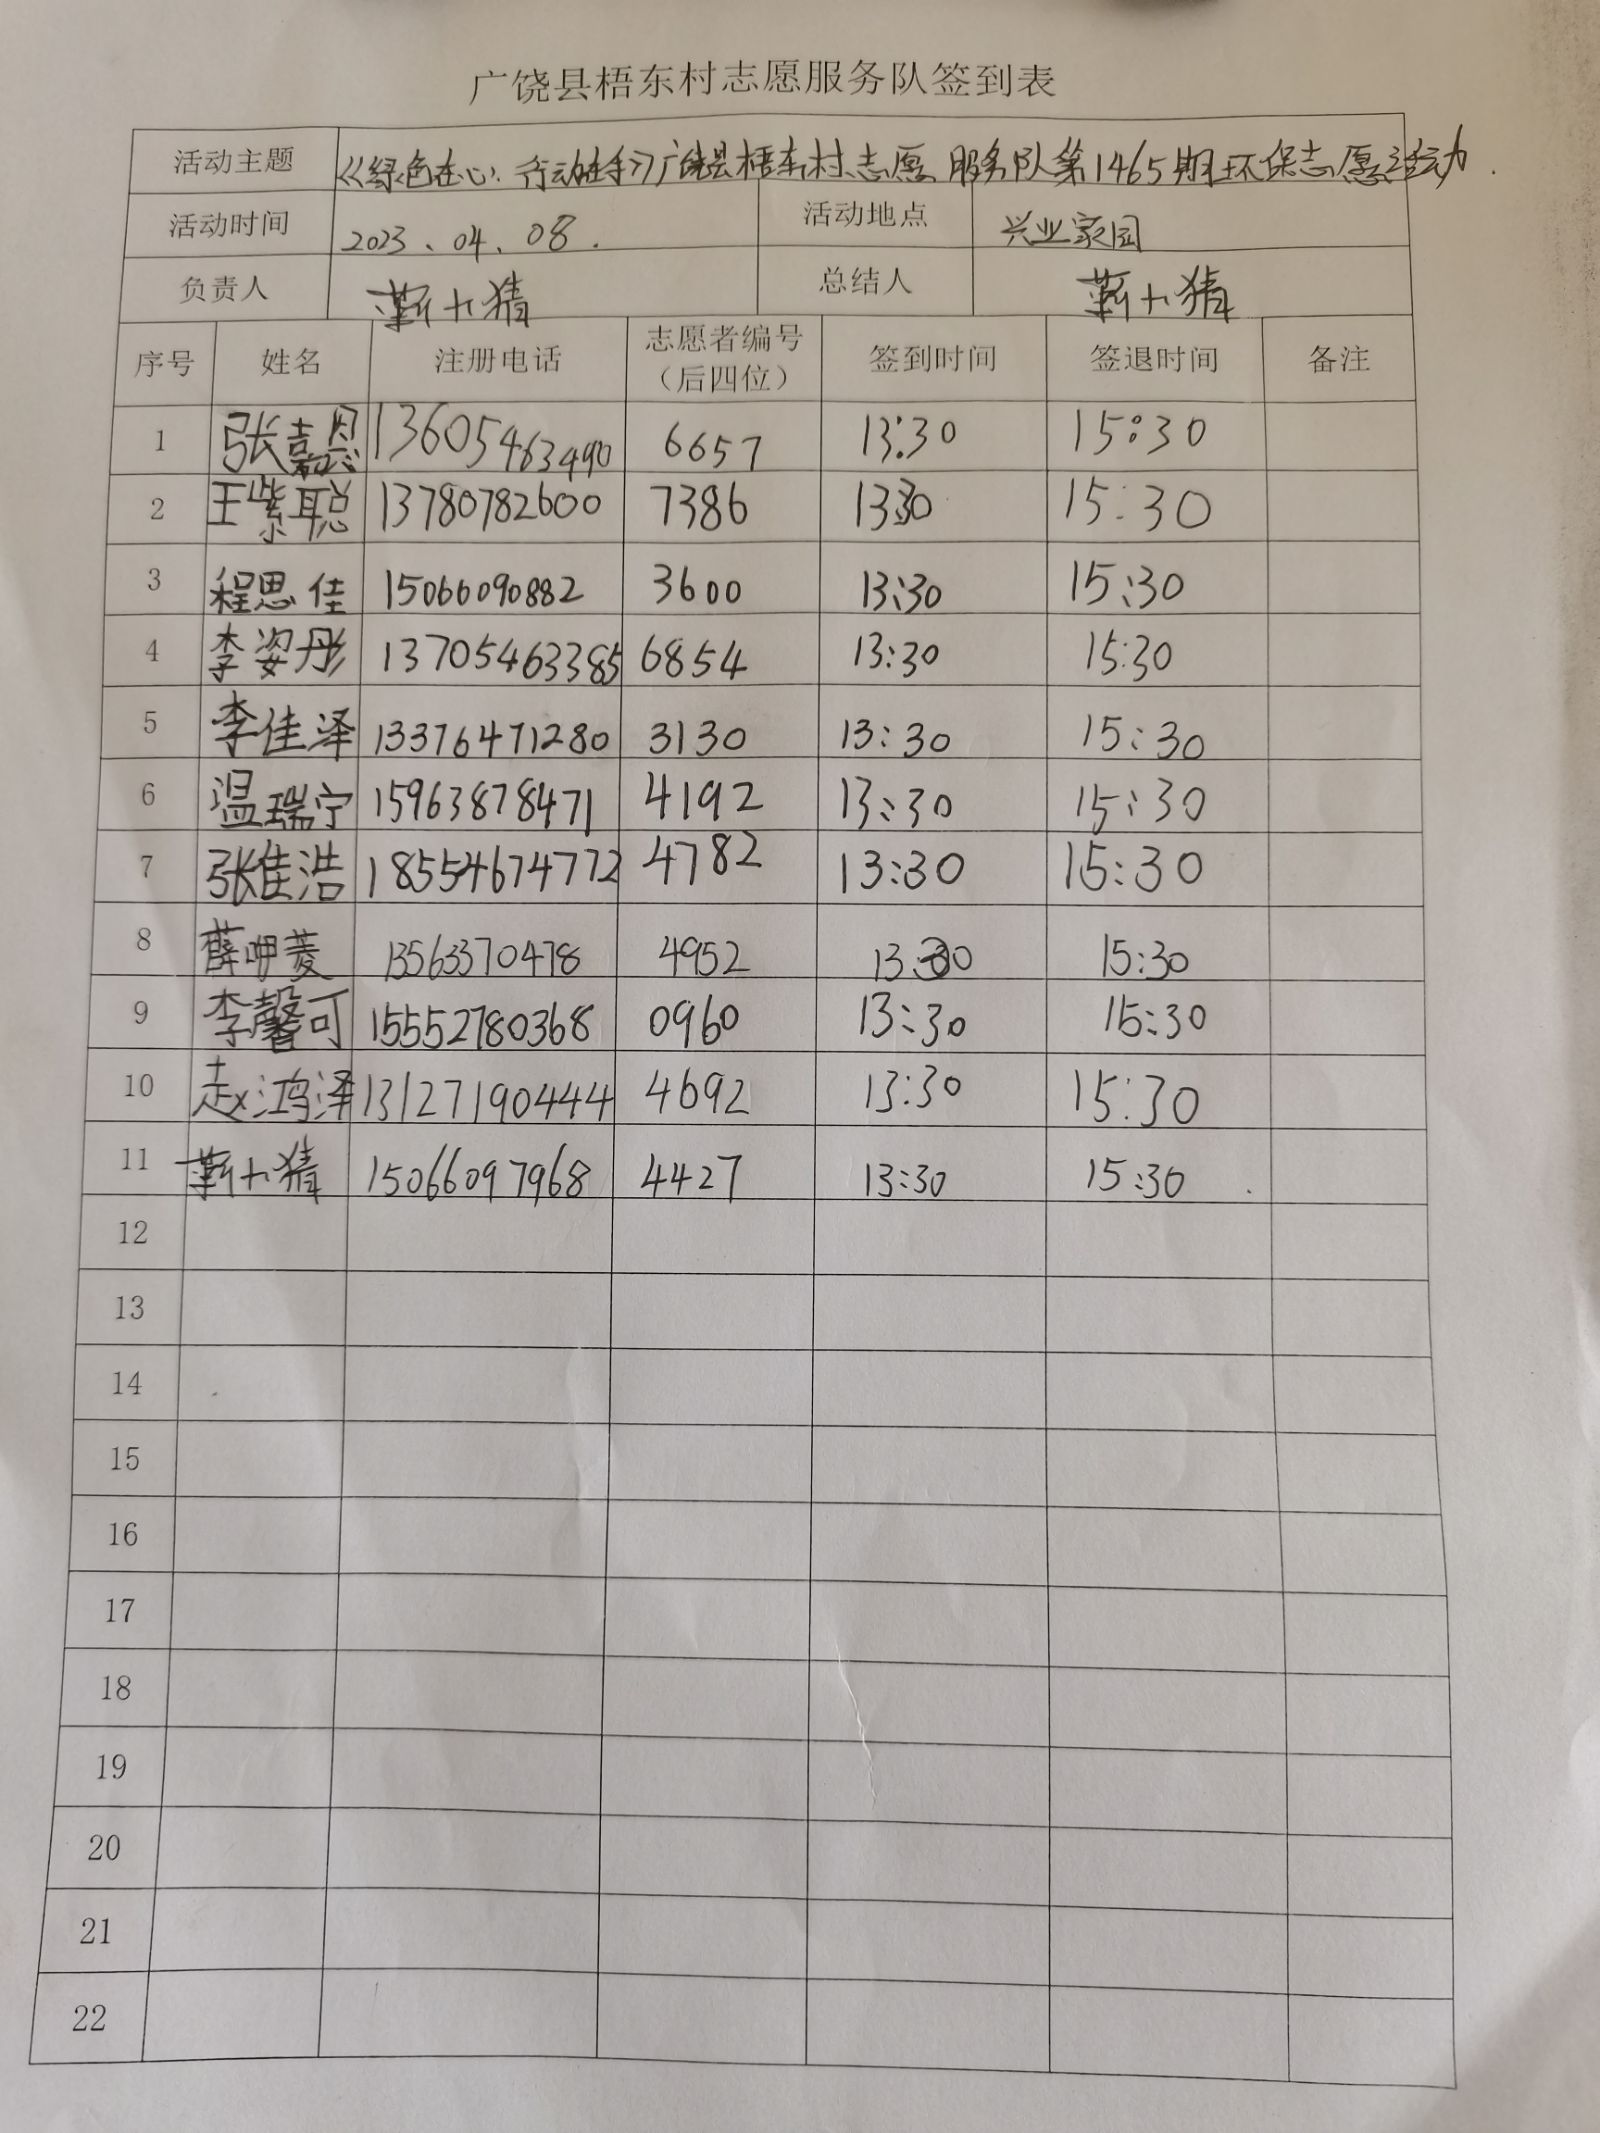 广饶县梧东村志愿服务队签到表
活动主题 《绿色在心、行动在手》广饶县梧东村志愿服务队第1465期环保志愿活动.
活动时间 2023、04、08. 活动地点 兴业家园
负责人 靳小猜 总结人 靳小猜
序号 姓名 注册电话 志愿者编号 签到时间 签退时间 备注
（后四位）
1 张嘉恩 13605463490 6657 13:30 15:30
2 王紫聪 13780782600 7386 1330 15:30
3 程思佳 15066090882 3600 13:30 15:30
4 李姿彤 13705463385 6854 13:30 15:30
5 李佳泽 13376471280 3130 13:30 15:30
6 温瑞宁 15963878471 4192 13:30 15:30
7 张佳浩 18554674772 4782 13:30 15:30
8 薛呷菱 13563370478 4952 13:30 15:30
9 李馨可 15552780368 0960 13:30 15:30
10 赵鸿泽 13127190444 4692 13:30 15:30
11 靳小猜 15066097968 4427 13:30 15:30
12
13
14
15
16
17
18
19
20
21
22